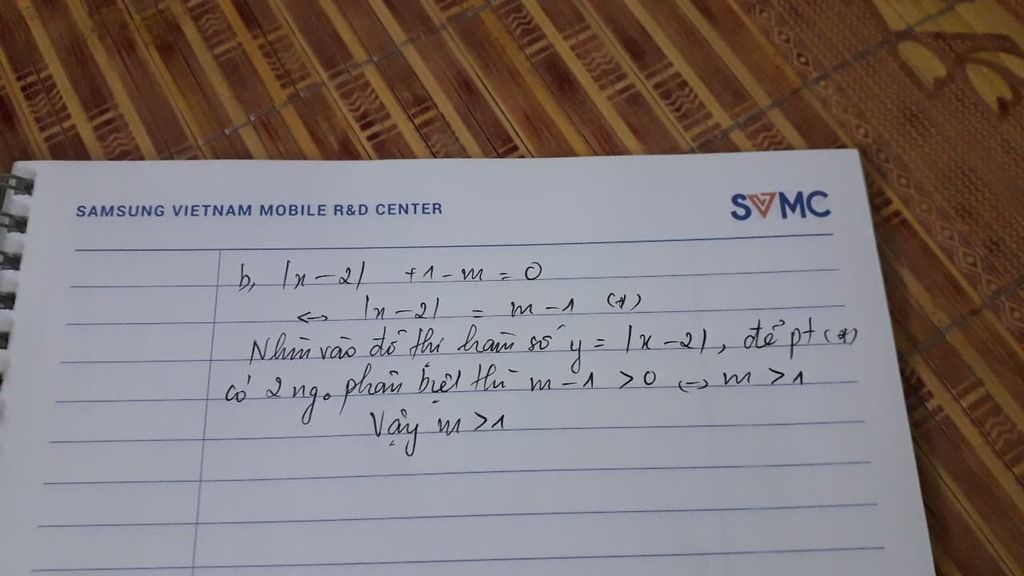 SAMSUNG VIETNAM MOBILE R&D CENTER
SVMC
b, |x-2| +1-m = 0
<=> |x-2| = m-1 (*)
Nhìn vào đồ thị hàm số y = |x-2|, để pt (*)
có 2 ng. phân biệt thì m-1 >0 <=> m >1
Vậy m >1